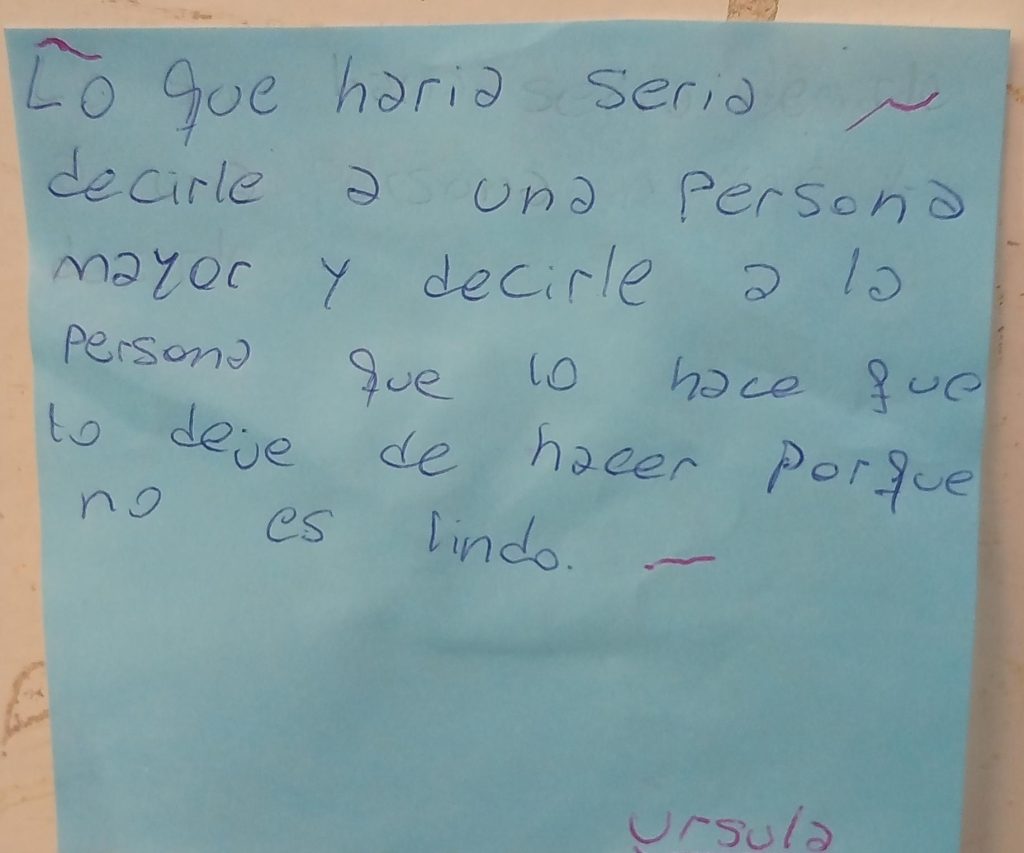 Lo que haria seria
decirle a una Persona
mayor y decirle a la
Persona que lo hace que
lo deje de hacer Porque
no es lindo.
Ursula